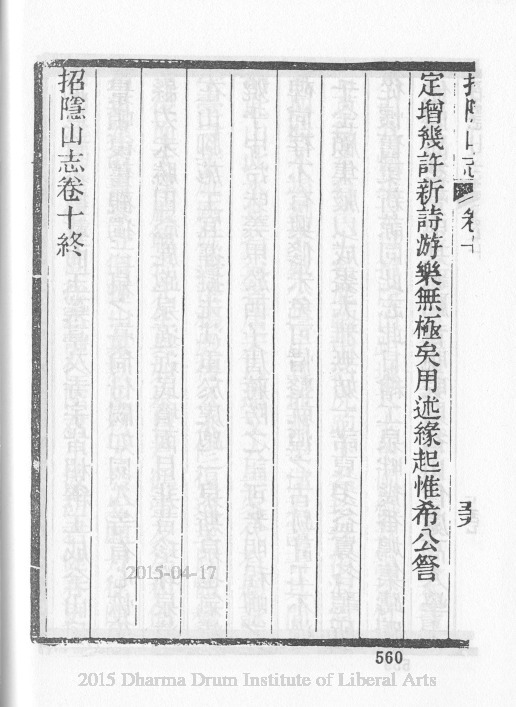 招隱山志 卷十
定增幾許新詩游樂無極矣用述緣起惟希公詧
招隱山志卷十終
2015-04-17
560
2015 Dharma Drum Institute of Liberal Arts